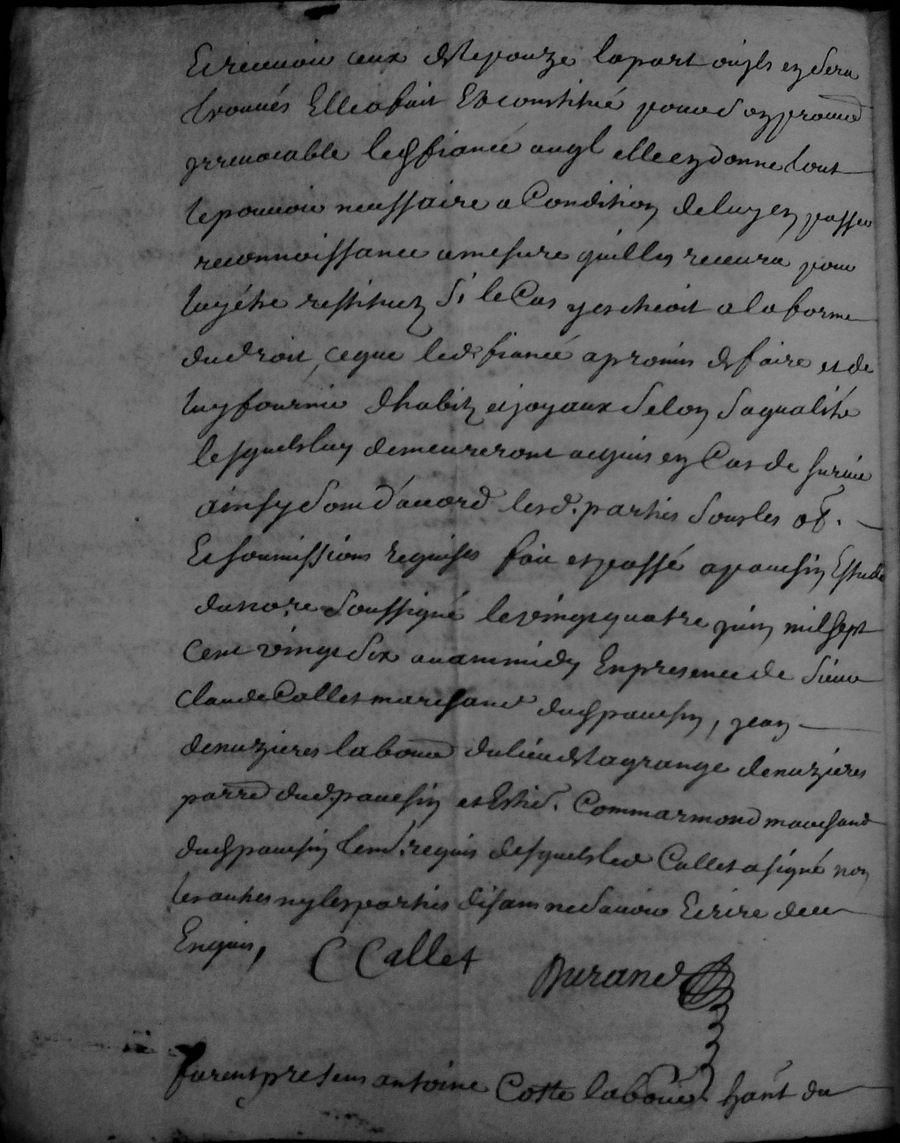 Et recevoir ceux de lepouze la part ou ils en sera
trouvés Elle a fait Et constitué pour son procur
irrevocable led fiancé auql elle en donne tout
le pouvoir necessaire a Condition de luy en passer
reconnoissance a mesure quil les recevra pour
luy étre restituez Si le Cas y escheoit a la forme
du droit, ce que led fiancé a promis de faire et de
luy fournir d'habitz et joyaux Selon Sa qualité
lesquels luy demeureront acquis en Cas de survie
ainsy Sont d'accord lesd. parties Sous les ob. –
Et soumissions requises fait et passé a pouesin Estude
du nore. Soussigné le vingt quatre juin mil sept
Cent vingt Six avant midy En presence de Sieur
Claude Callet marchand dud , jean –
denuzieres laboure du lieu de lagrange denuzieres
parre dud. et Commarmond marchand
dud temd. requis desquels led Callet a signé non
les autres ny les parties disant ne Savoir Ecrire de ce
Enquis,
C Callet
Durand
furent presens antoine Coste laboure. hant du